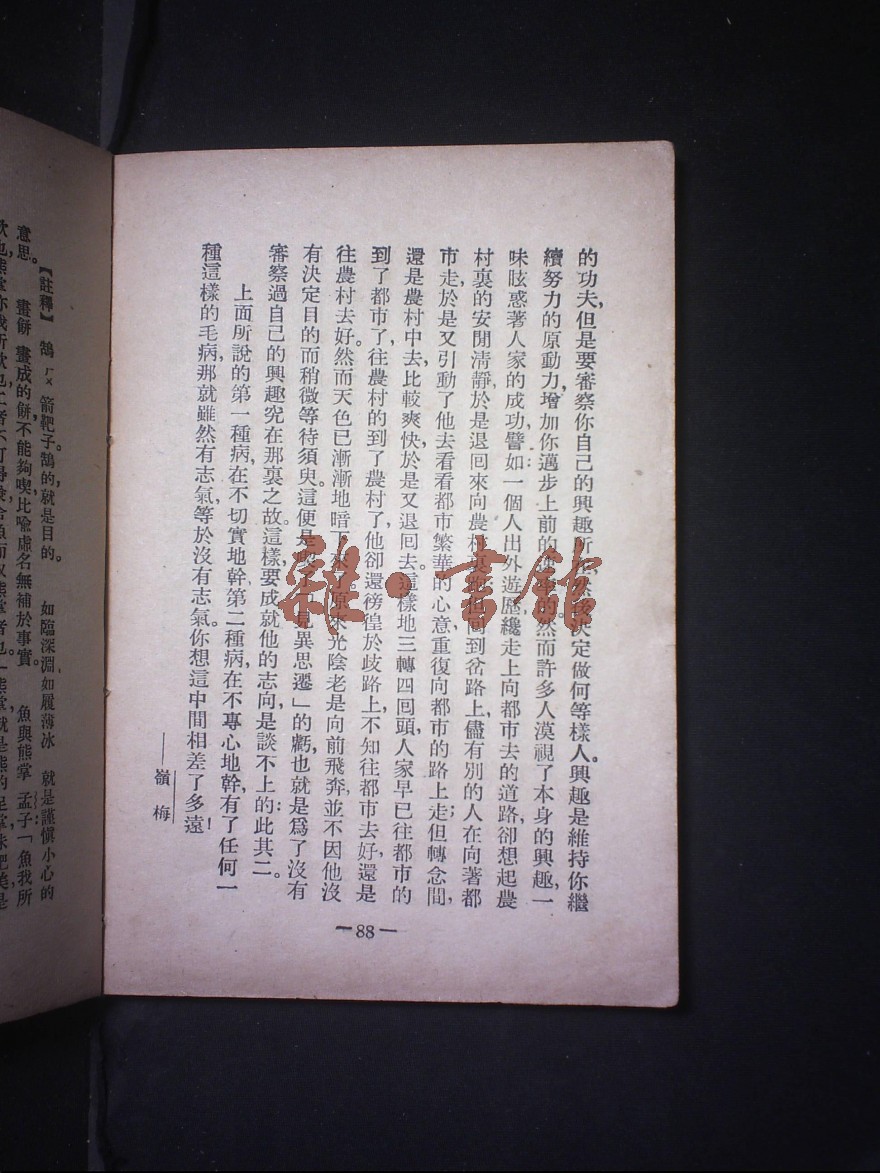 的功夫,但是要審察你自己的興趣所在,然後決定做何等樣人。興趣是維持你繼
續努力的原動力,增加你邁步上前的 然而許多人漠視了本身的興趣,一
味眩惑著人家的成功,譬如一個人出外遊歷,纔走上向都市去的道路,卻想起農
村裏的安閒清靜,於是退回來向農村裏 回到岔路上,儘有別的人在向著都
市走,於是又引動了他去看看都市繁華的心意,重復向都市的路上走;但轉念間,
還是農村中去比較爽快,於是又退回去。這樣地三轉四回頭,人家早已往都市的
到了都市了,往農村的到了農村了,他卻還徬徨於歧路上,不知往都市去好,還是
往農村去好。然而天色已漸漸地暗下來了。原來光陰老是向前飛奔,並不因他沒
有決定目的而稍微等待須臾。這便是 「見異思遷」的虧,也就是爲了沒有
審察過自己的興趣究在那裏之故。這樣要成就他的志向,是談不上的:此其二。
上面所說的第一種病,在不切實地幹,第二種病,在不專心地幹,有了任何一
種這樣的毛病,那就雖然有志氣,等於沒有志氣。你想這中間相差了多遠!
——嶺梅
—88—
【註釋】 鵠 ㄏㄨ 箭靶子。鵠的就是目的。 如臨深淵,如履薄冰 就是謹慎小心的
意思。 畫餅 畫成的餅,不能夠喫,比喻虛名無補於事實。 魚與熊掌 孟子:「魚我所
欲也,熊掌亦我所欲也,二者不可得兼,舍魚而取熊掌者也。」熊掌就是熊的足掌,味肥美,是
雜·書館